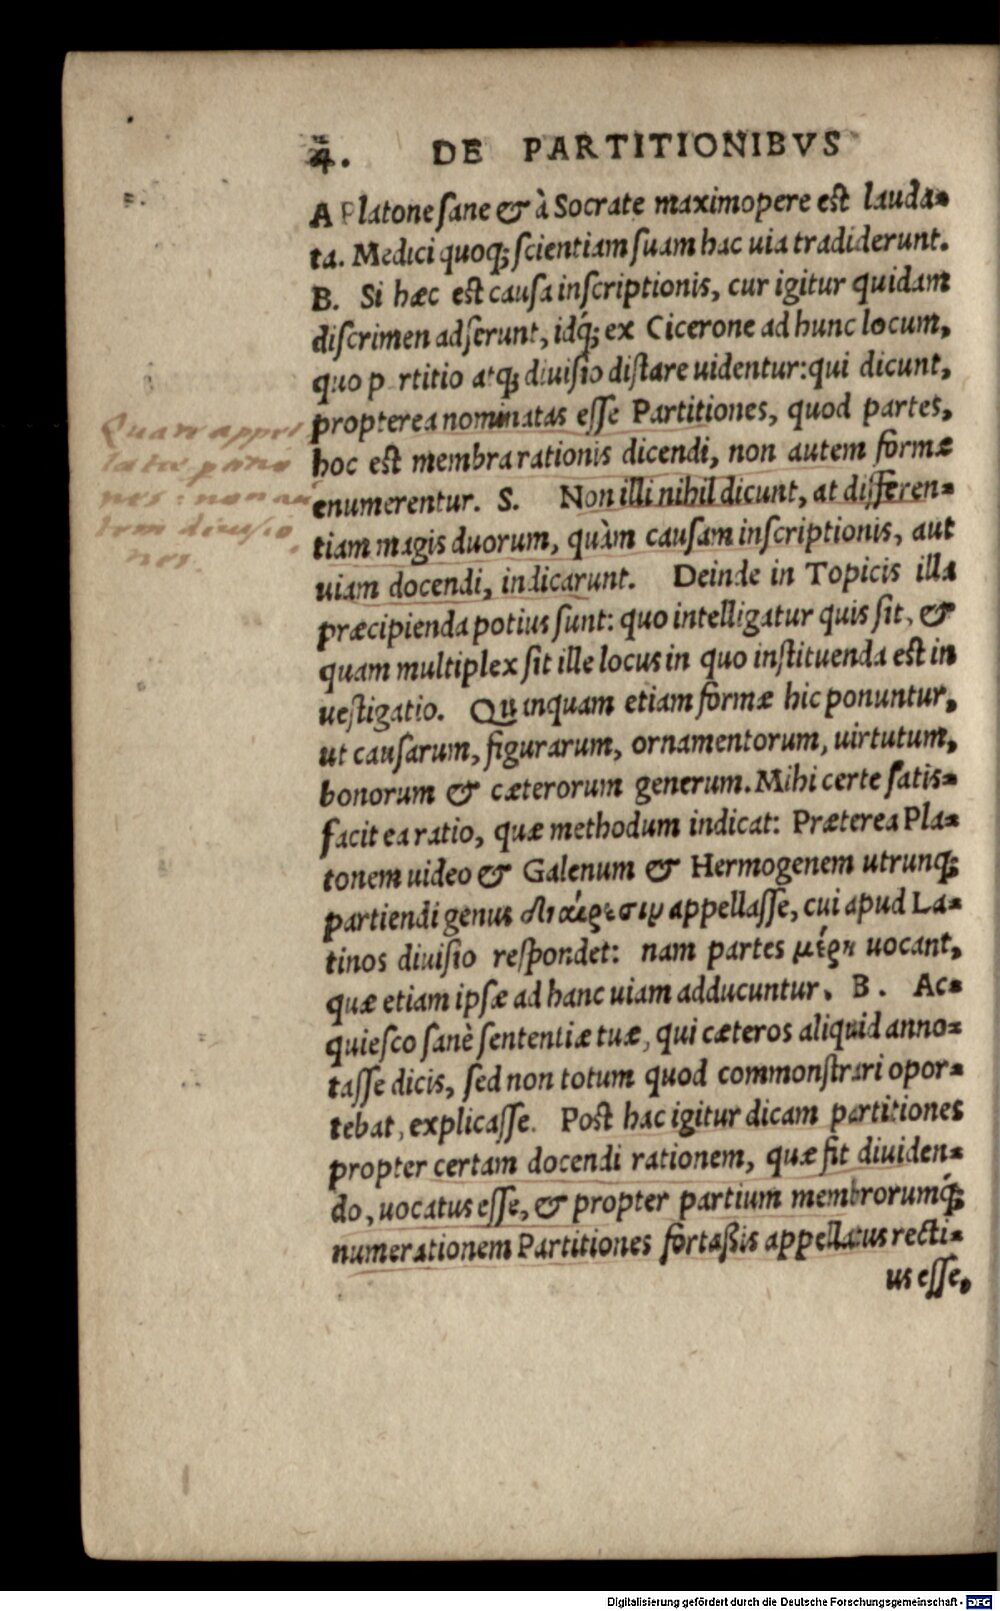 4. DE PARTITIONIBVS
A Platone sane & à Socrate maximopere est lauda-
ta. Medici quoq; scientiam suam hac uia tradiderunt.
B. Si hæc est causa inscriptionis, cur igitur quidam
discrimen adserunt, idq́; ex Cicerone ad hunc locum,
quo partitio atq; diuisio distare uidentur: qui dicunt,
propterea nominatas esse Partitiones, quod partes,
hoc est membra rationis dicendi, non autem formæ
enumerentur. S. Non illi nihil dicunt, at differen-
tiam magis duorum, quàm causam inscriptionis, aut
uiam docendi, indicarunt. Deinde in Topicis illa
præcipienda potius sunt: quo intelligatur quis sit, &
quam multiplex sit ille locus in quo instituenda est in
uestigatio. Quanquam etiam formæ hic ponuntur,
ut causarum, figurarum, ornamentorum, uirtutum,
bonorum & cæterorum generum. Mihi certe satis-
facit ea ratio, quæ methodum indicat: Præterea Pla-
tonem uideo & Galenum & Hermogenem utrunq;
partiendi genus διαίρεσιν appellasse, cui apud La-
tinos diuisio respondet: nam partes μέρη uocant,
quæ etiam ipsæ ad hanc uiam adducuntur. B. Ac-
quiesco sanè sententiæ tuæ, qui cæteros aliquid anno-
tasse dicis, sed non totum quod commonstrari opor-
tebat, explicasse. Post hac igitur dicam partitiones
propter certam docendi rationem, quæ fit diuiden-
do, uocatus esse, & propter partium membrorumq́;
numerationem Partitiones fortaßis appellatus recti-
us esse,
Quare appel
latæ partitio
nes: non au
tem diuisio
nes.
Digitalisierung gefördert durch die Deutsche Forschungsgemeinschaft - DFG